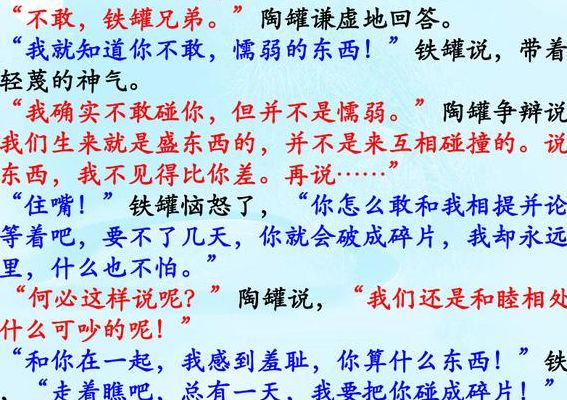 “不敢，铁罐兄弟。”陶罐谦虚地回答。
“我就知道你不敢，懦弱的东西！”铁罐说，带着
轻蔑的神气。
“我确实不敢碰你，但并不是懦弱。”陶罐争辩说
我们生来就是盛东西的，并不是来互相碰撞的。说
东西，我不见得比你差。再说……”
“住嘴！”铁罐恼怒了，“你怎么敢和我相提并论
等着吧，要不了几天，你就会破成碎片，我却永远
里，什么也不怕。”
“何必这样说呢？”陶罐说，“我们还是和睦相处
什么可吵的呢！”
“和你在一起，我感到羞耻，你算什么东西！”铁
，“走着瞧吧，总有一天，我要把你碰成碎片！”